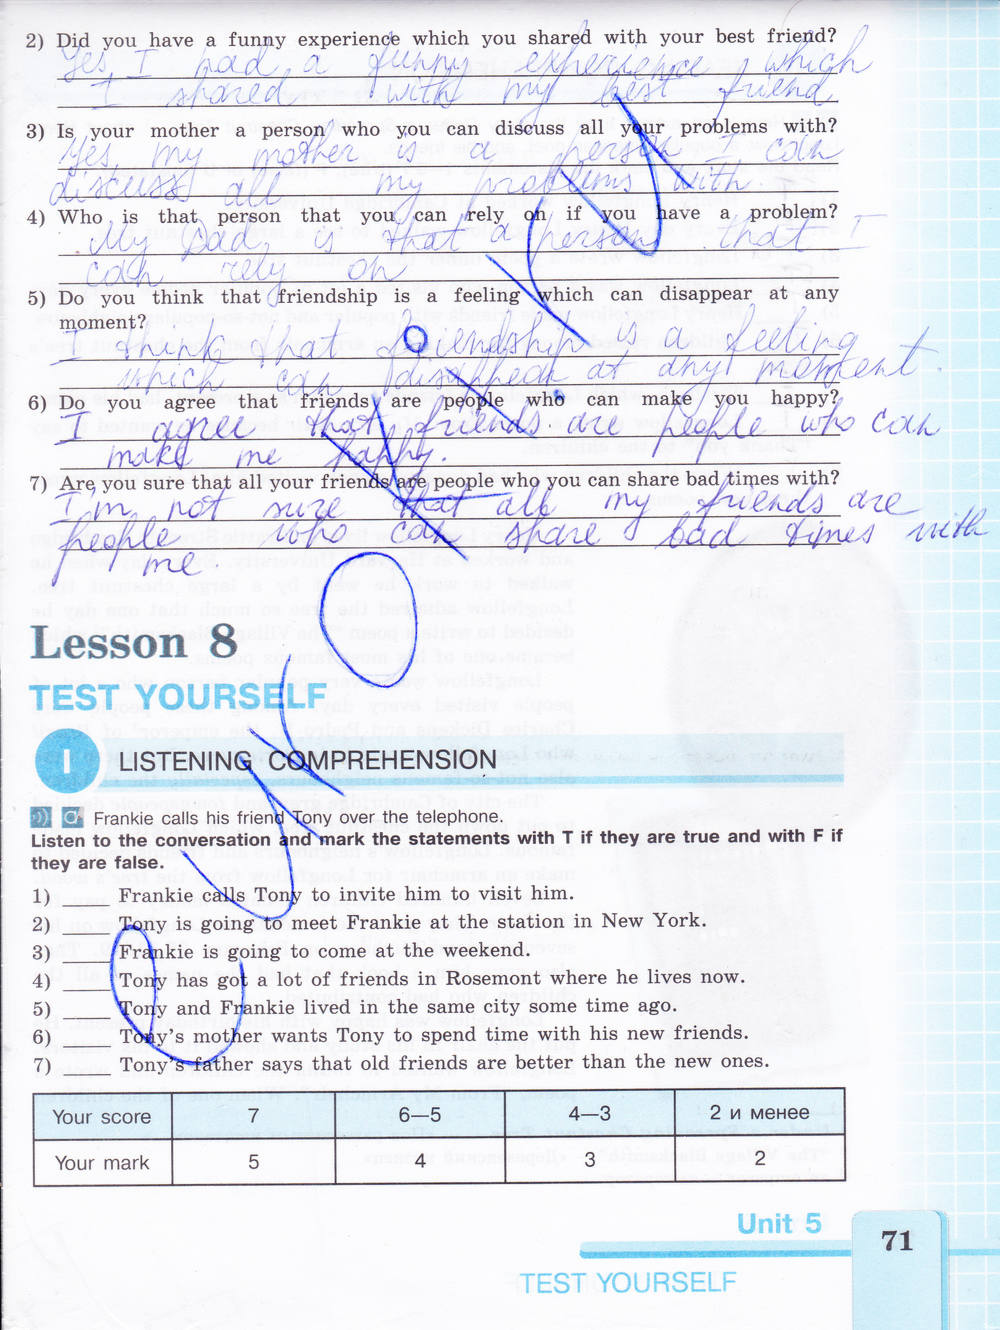 2) Did you have a funny experience which you shared with your best friend?
Yes I had a funny experience which
I shared with my best friend
3) Is your mother a person who you can discuss all your problems with?
Yes, my mother is a person I can
discuss all my problems with.
4) Who is that person that you can rely on if you have a problem?
My Dad is that a person that I
can rely on
5) Do you think that friendship is a feeling which can disappear at any
moment?
I think that friendship is a feeling
which can disappear at any moment.
6) Do you agree that friends are people who can make you happy?
I agree that friends are people who can
make me happy.
7) Are you sure that all your friends are people who you can share bad times with?
I'm not sure that all my friends are
people who can share bad times with
me
Lesson 8
TEST YOURSELF
I LISTENING COMPREHENSION
Frankie calls his friend Tony over the telephone.
Listen to the conversation and mark the statements with T if they are true and with F if
they are false.
1) ___ Frankie calls Tony to invite him to visit him.
2) ___ Tony is going to meet Frankie at the station in New York.
3) ___ Frankie is going to come at the weekend.
4) ___ Tony has got a lot of friends in Rosemont where he lives now.
5) ___ Tony and Frankie lived in the same city some time ago.
6) ___ Tony's mother wants Tony to spend time with his new friends.
7) ___ Tony's father says that old friends are better than the new ones.
Your score 7 6—5 4—3 2 и менее
Your mark 5 4 3 2
Unit 5
71
TEST YOURSELF